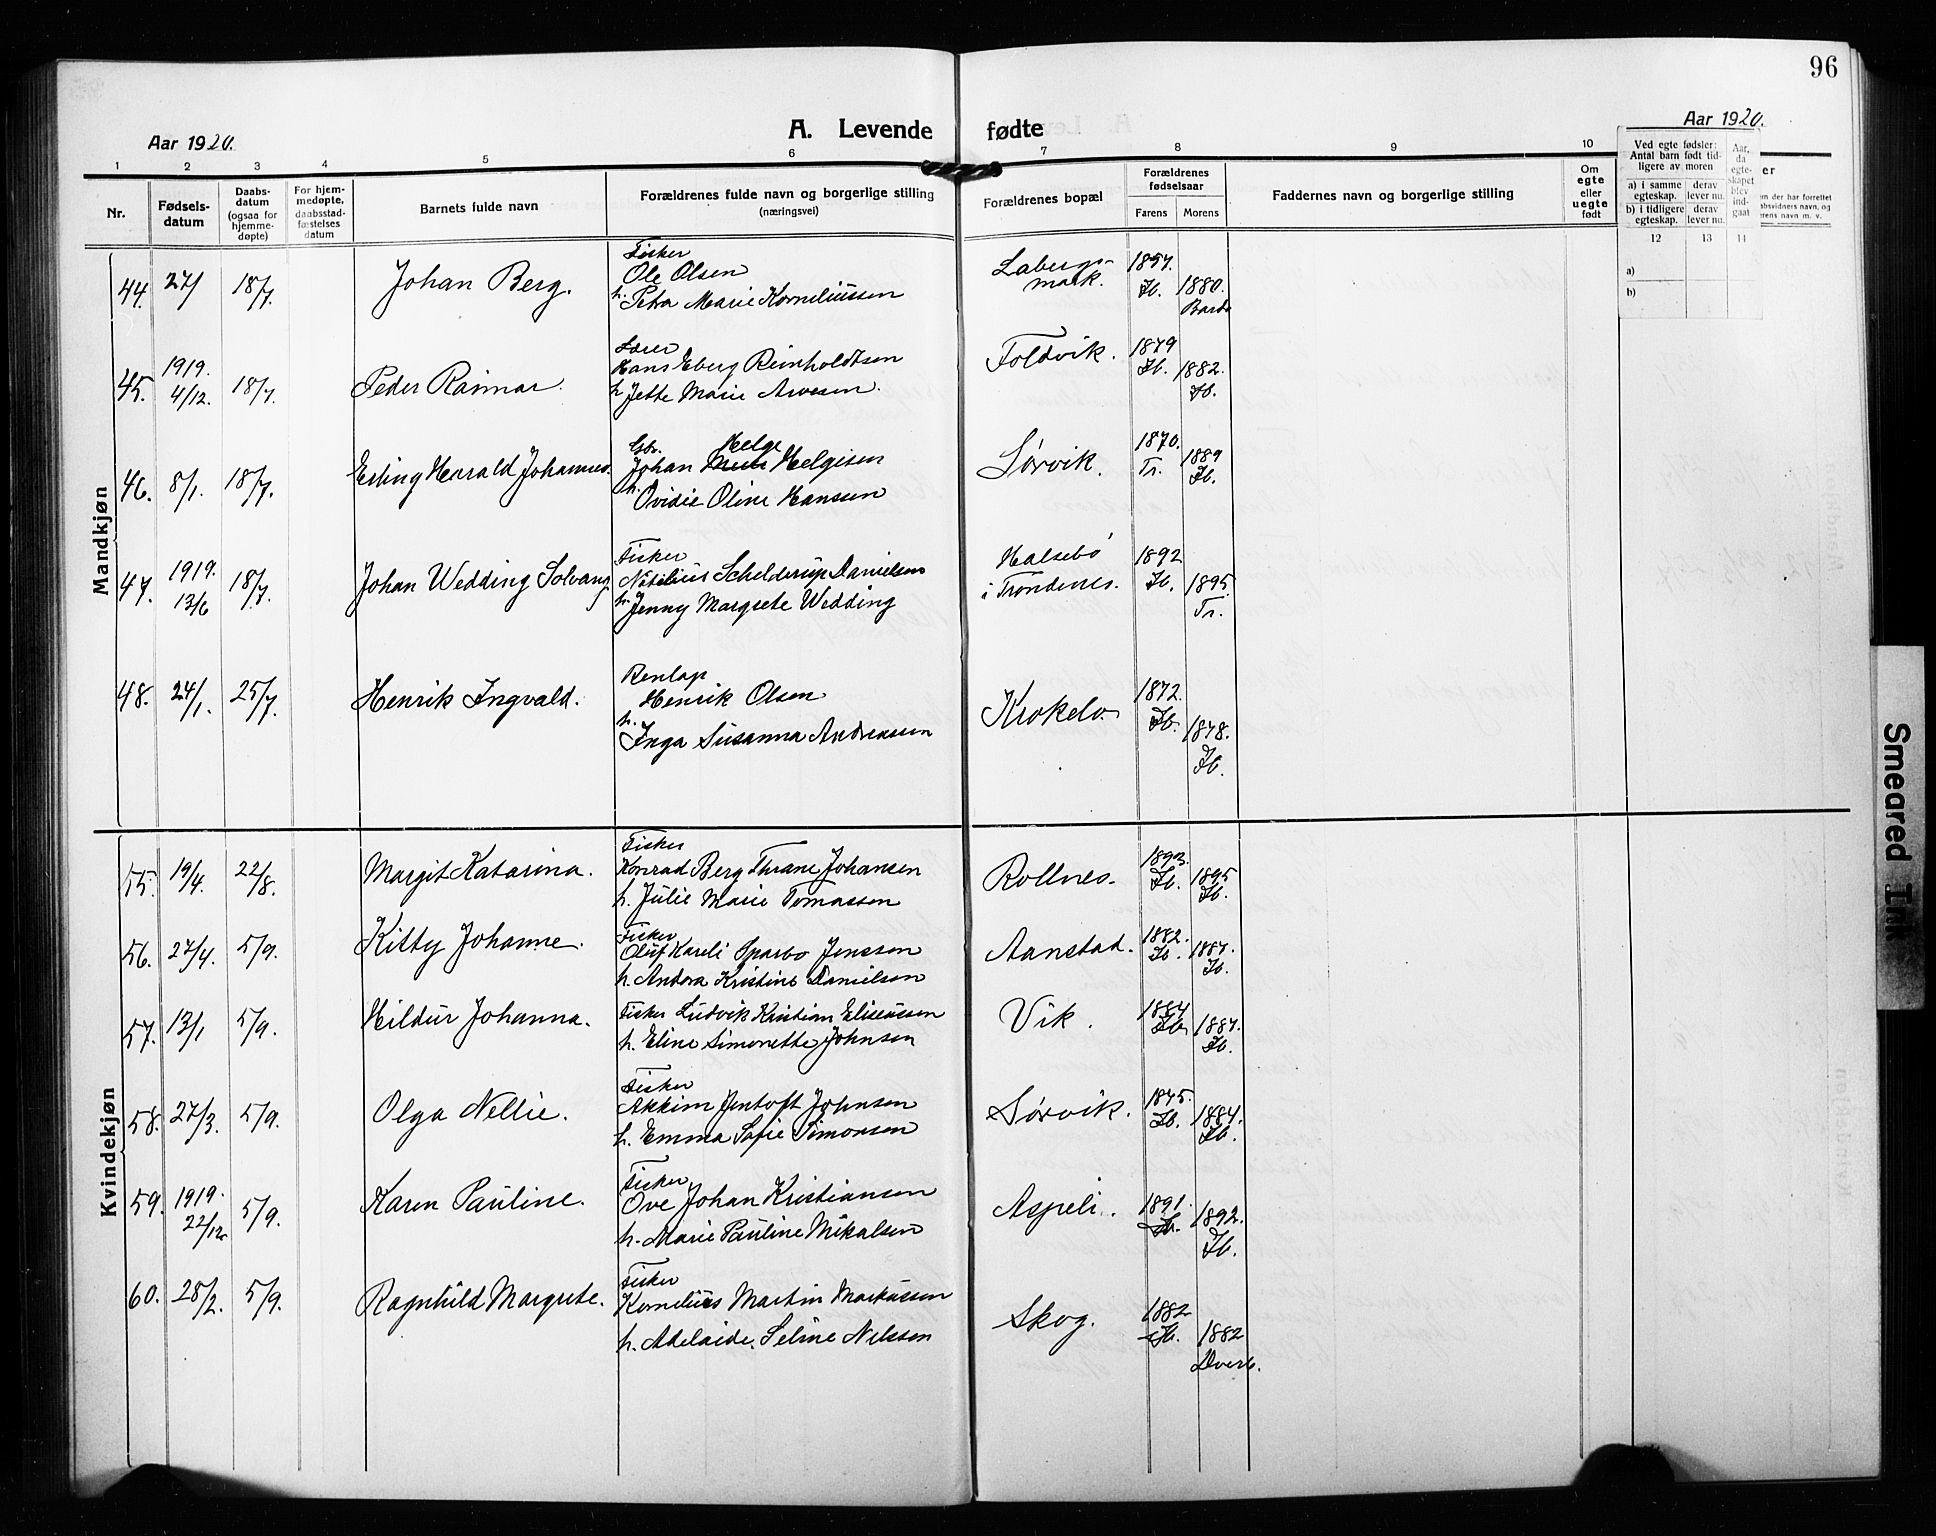 96
Aar 1920.
A. Levende fødte
Aar 1920.
1 2 3 4 5 6 7 8 9 10
Nr.
Fødsels-
datum
Daabs-
datum
(ogsaa for
hjemme-
døpte)
For hjem-
medøpte,
daabsstad-
fæstelses
datum
Barnets fulde navn
Forældrenes fulde navn og borgerlige stilling
(næringsvei)
Forældrenes bopæl
Forældrenes
fødselsaar
Farens Morens
Faddernes navn og borgerlige stilling
Om
egte
eller
uegte
født
Ved egte fødsler:
Antal barn født tid-
ligere av moren
a) i samme
egteskap.
derav
lever nu.
b) i tidligere
egteskap.
derav
lever nu.
Aar,
da
egte-
skapet
blev
ind-
gaat
12 13 14
a)
b)
er
en der har forrettet
absvidners navn, og
erens navn m. v.
Mandkjøn
Fisker
44. 27/1 18/7. Johan Berg. Ole Olsen
h. Petra Marie Korneliussen
Labergs-
mark.
1857.
Ib.
1880.
Bardo
Lærer
45. 1919. 4/12. 18/7. Peder Raimar. Hans Eberg Reinholdtsen
h. Jette Marie Arvesen.
Foldvik.
1879
Ib.
1882.
Ib.
Gbr. Helge
46. 8/1. 18/7. Erling Harald Johannes. Johan Helgesen
h. Ovidie Oline Hanssen
Sørvik.
1870.
Tr.
1889
Ib.
Fisker
47. 1919. 13/6 18/7. Johan Wedding Solvang. Natalius Schelderup Danielsen
h. Jenny Margrete Wedding
Halsebø
i Trondenes.
1892
Ib.
1895.
Tr.
Renlap
48. 24/1. 25/7. Henrik Ingvald. Henrik Olsen
h. Inga Susanna Andreassen
Krokelv
1872.
Ib.
1878.
Ib.
Kvindekjøn
Fisker
55. 19/4. 22/8. Margit Katarina. Konrad Berg Thrane Johansen
h. Julie Marie Tomassen
Rollnes.
1893.
Ib.
1895
Ib.
Fisker
56. 27/4. 5/9. Kitty Johanne. Oluf Kareli Sparbo Jenssen
h. Andora Kristine Danielsen
Aanstad.
1882.
Ib.
1887.
Ib.
57. 13/1 5/9. Hildur Johanna. Fisker Ludvik Kristian Eliseussen
h. Eline Simonette Johnsen
Vik.
1884
Ib.
1887.
Ib.
Fisker
58. 27/3. 5/9. Olga Nellie. Akkim Jentoft Johnsen
h. Emma Sofie Simonsen
Sørvik.
1875.
Ib.
1884.
Ib.
Fisker
59. 1919. 22/12 5/9. Karen Pauline. Ove Johan Kristiansen
h. Marie Pauline Mikalsen
Aspeli.
1891.
Ib.
1892.
Ib.
Fisker
60. 28/2. 5/9. Ragnhild Margrete. Kornelius Martin Markussen
h. Adelaide Seline Nilssen
Skog.
1882
Ib.
1882
Dverb.
Smeared Ink